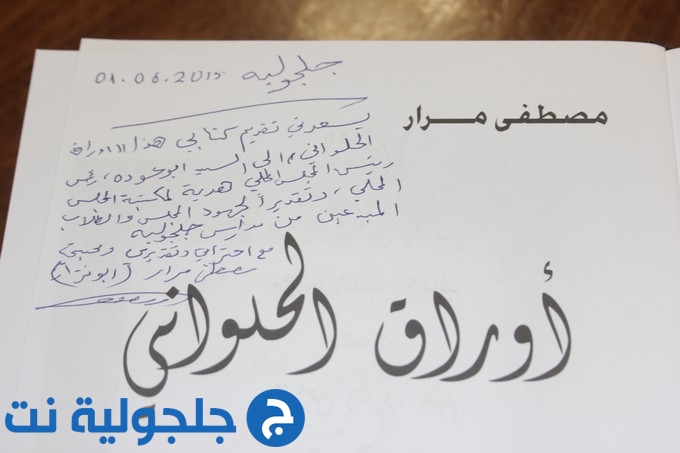 جلجوليه 01.06.2015
مصطفى مرار
يسعدني تقديم كتابي هذا "اوراق
الحلواني" الى السيد ابو عوده، رئيس
رئيس المجلس المحلي هدية لمكتبة المجلس
المحلي، وتقديراً لجهود المجلس والطلاب
المبدعين من مدارس جلجوليه
مع احترامي وتقديري ومحبتي
مصطفى مرار (ابو نزار)
أوراق الحلواني
جلجولية نت